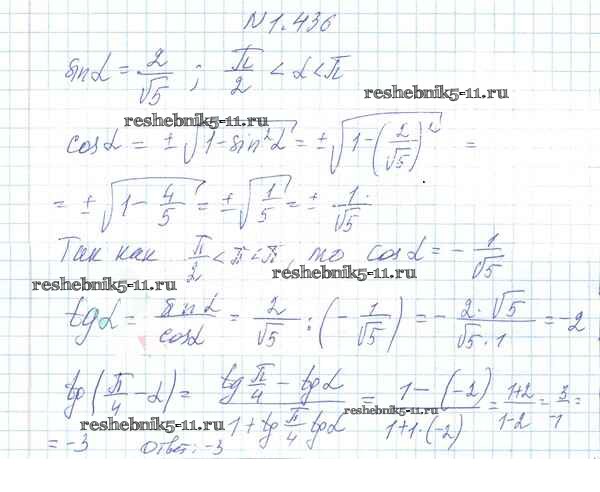 N 1.436
sin α = 2/√5 ; π/2 < α < π
reshebnik5-11.ru
reshebnik5-11.ru
cos α = ± √(1 - sin²α) = ± √(1 - (2/√5)²) =
= ± √(1 - 4/5) = ± √(1/5) = ± 1/√5
Так как π/2 < π < π, то cos α = - 1/√5
reshebnik5-11.ru
reshebnik5-11.ru
tg α = sin α / cos α = 2/√5 : (- 1/√5) = - 2·√5 / √5·1 = -2
tg(π/4 - α) = (tg π/4 - tg α) / (1 + tg π/4 tg α) = (1 - (-2)) / (1 + 1·(-2)) = (1+2)/(1-2) = 3/-1 =
reshebnik5-11.ru
reshebnik5-11.ru
= -3 Ответ: -3